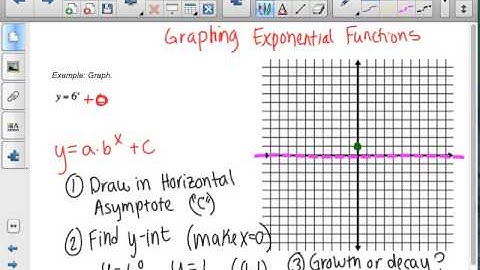 Graphing Exponential Functions
Example: Graph.
y = 6ˣ + 0
y = a·bˣ + c
① Draw in Horizontal
Asymptote ("C")
② Find y-int (make x=0)
③ Growth or decay?